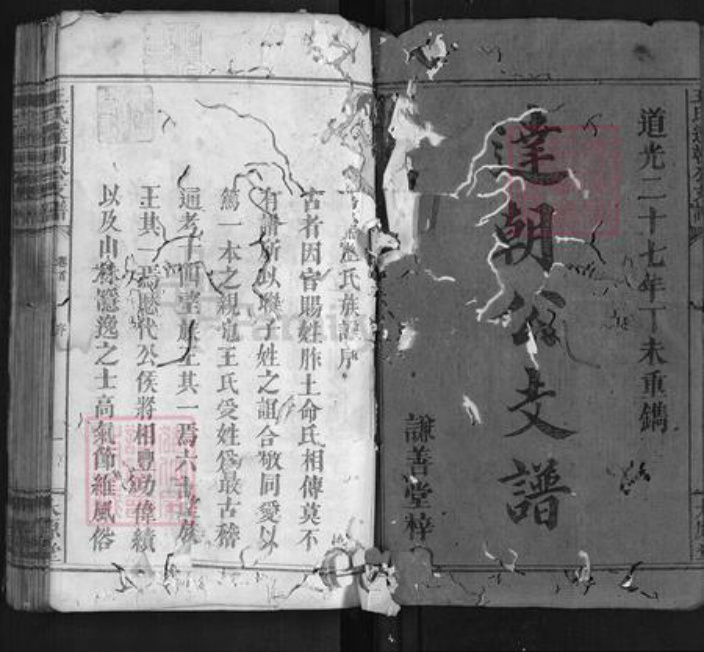 道光二十七年丁未重鐫
達朝公支譜
謙善堂梓
王氏族譜序
古者因官賜姓胙土命氏相傳莫不
有譜所以聯子姓之誼合敬同愛以
篤一本之親也王氏受姓為最古稽
通考十四望族王其一焉六
王其一焉歷代公侯將相豐功偉績
以及山林隱逸之士高氣節維風俗
王氏達朝公支譜
卷首
序
一
太原堂